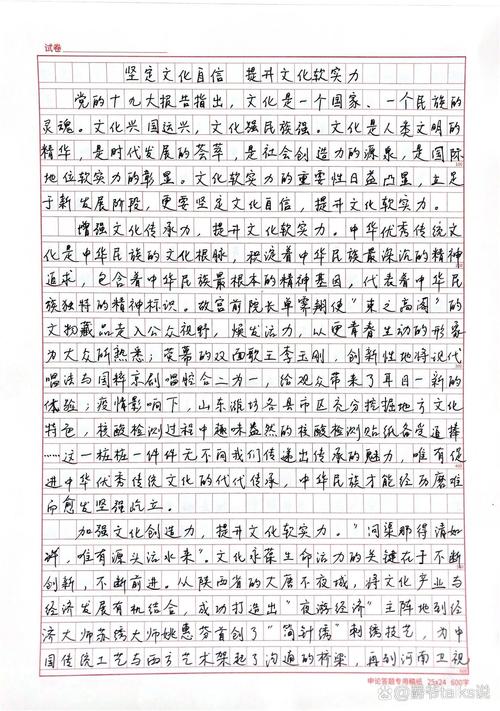 试卷
坚定文化自信 提升文化软实力
党的十九大报告指出，文化是一个国家、一个民族的
灵魂。文化兴国运兴，文化强民族强。文化是人类文明的
精华，是时代发展的荟萃，是社会创造力的源泉，是国际
地位软实力的彰显。文化软实力的重要性日益凸显，立足
于新发展阶段，更要坚定文化自信，提升文化软实力。
增强文化传承力，提升文化软实力。中华优秀传统文
化是中华民族的文化根脉，积淀着中华民族最深沉的精神
追求，包含着中华民族最根本的精神基因，代表着中华民
族独特的精神标识。故宫前院长单霁翔使“束之高阁”的
文物藏品走入公众视野，焕发活力，以更青春生动的形象
为大众所熟悉；荧幕的双面歌王李玉刚，创新性地将现代
唱法与国粹京剧唱腔合二为一，给观众带来了耳目一新的
体验；疫情影响下，山东潍坊各县市区充分挖掘地方文化
特色，核酸检测过程中趣味盎然的核酸检测贴纸备受追捧
……这一桩桩一件件无不向我们传递出传承的魅力，唯有促
进中华优秀传统文化的代代传承，中华民族才能经历磨难
而愈发坚强屹立。
加强文化创造力，提升文化软实力。“问渠那得清如
许，唯有源头活水来”。文化永葆生命活力的关键在于不断
创新，不断前进。从陕西省的大唐不夜城，将文化产业与
经济发展有机结合，成功打造出“夜游经济”主阵地到经
济大师苏绣大师姚惠芬首创了“简针绣”刺绣技艺，为中
国传统工艺与西方艺术架起了沟通的桥梁，再到河南卫视
申论答题专用稿纸 25x24 600字